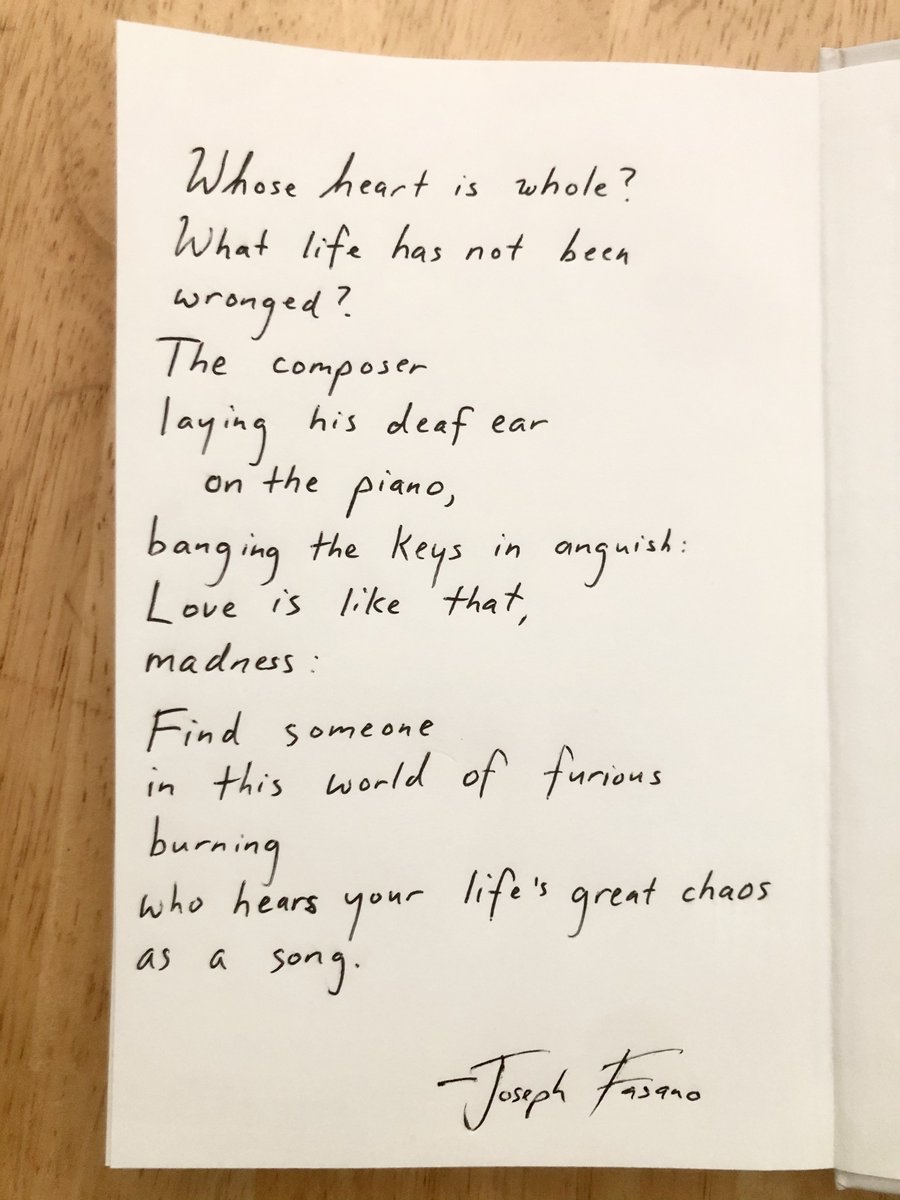 Whose heart is whole?
What life has not been
wronged?
The composer
laying his deaf ear
on the piano,
banging the keys in anguish:
Love is like that,
madness:
Find someone
in this world of furious
burning
who hears your life's great chaos
as a song.
-Joseph Fasano